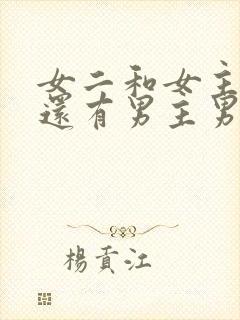 女二和女主
還有男主男
楊貢江